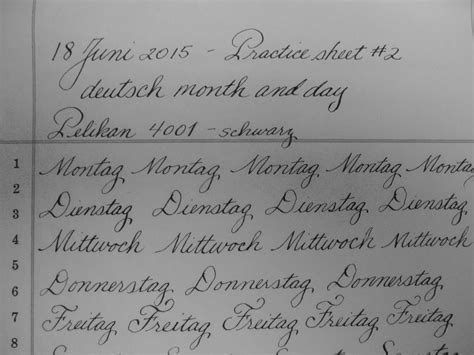 18 Juni 2015 - Practice sheet #2
deutsch month and day
Pelikan 4001 - schwarz
1 Montag Montag Montag Montag Montag
2
3 Dienstag Dienstag Dienstag Dienstag
4 Mittwoch Mittwoch Mittwoch Mittwoch
5
6 Donnerstag Donnerstag Donnerstag
7 Freitag Freitag Freitag Freitag
8